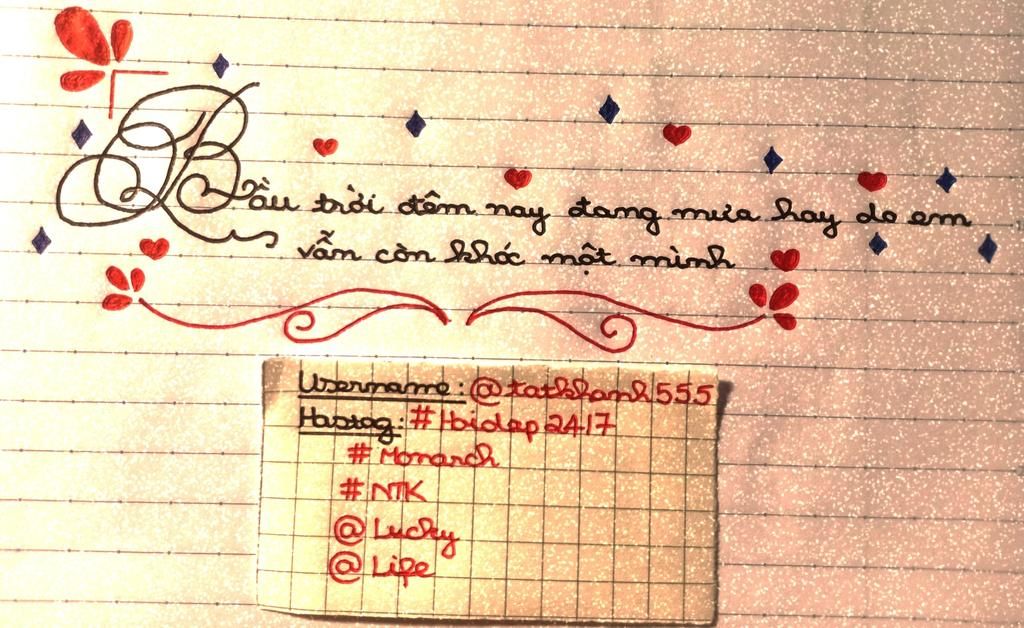 Bầu trời đêm nay đang mưa hay do em
vẫn còn khóc một mình
Username: @tatkhanh555
Hastag: #Hoidap2417
# Monarch
# NTK
@ Lucky
@ Life